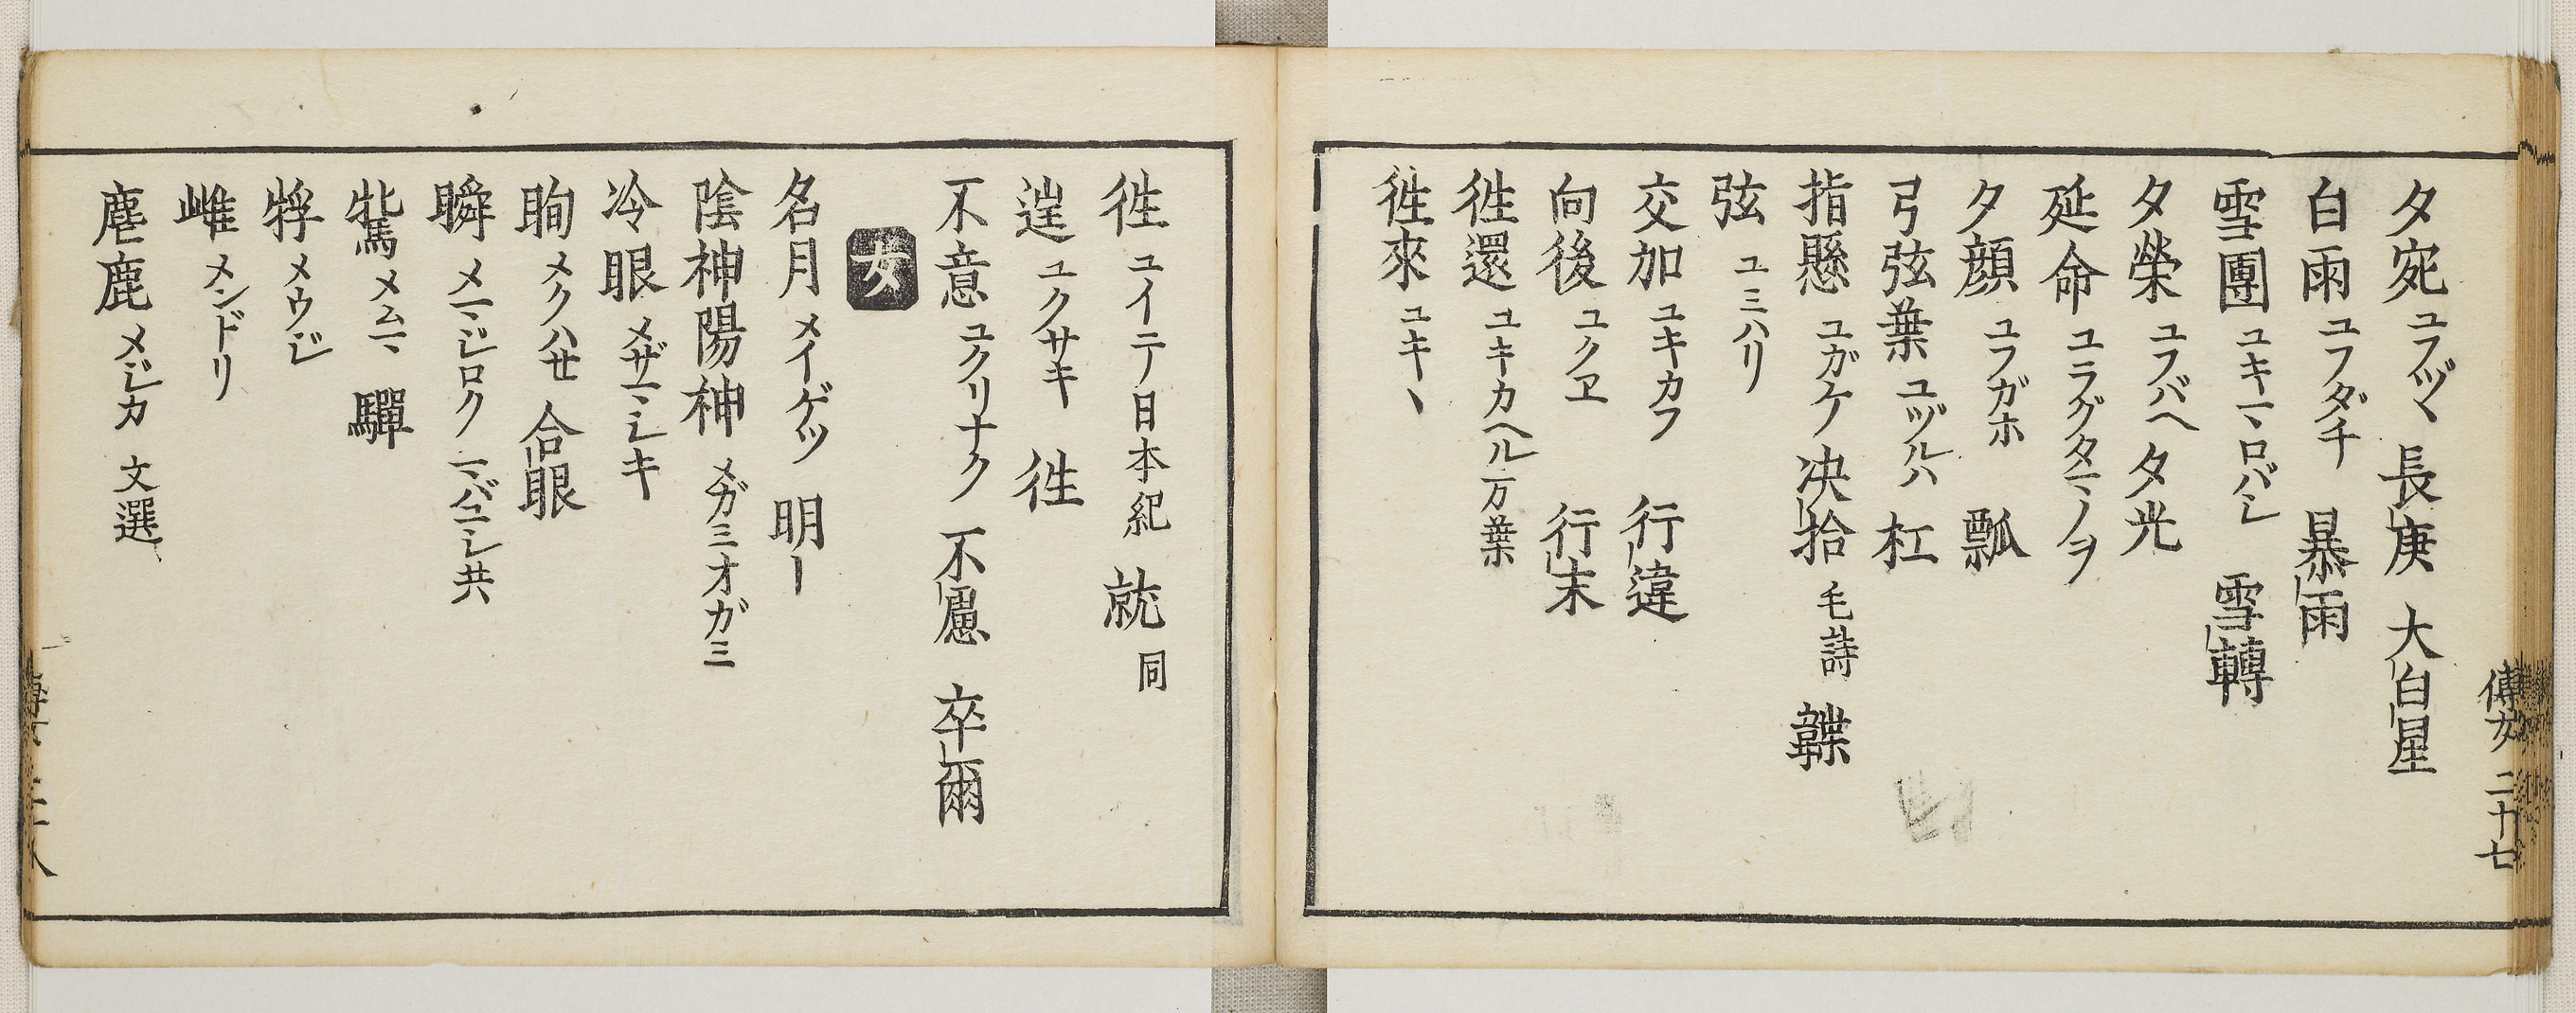 夕宛 ユフヅヽ 長庚 大白星
白雨 ユフダチ 暴雨
雪團 ユキマロバシ 雪轉
夕榮 ユフバヘ 夕光
延命 ユラグタマノヲ
夕顔 ユフガホ 瓢
弓弦葉 ユヅルハ 杠
指懸 ユガケ 决拾 毛詩 韘
弦 ユミハリ
交加 ユキカフ 行違
向後 ユクヱ 行末
徃還 ユキカヘル 万葉
徃來 ユキヽ
傳女 二十七
徃 ユイテ 日本紀 就 同
逞 ユクサキ 徃
不意 ユクリナク 不慮 卒爾
女
名月 メイゲツ 明ー
陰神陽神 メガミオガミ
冷眼 メザマシキ
眴 メクハせ 合眼
瞬 メマジロク マバユシ共
騭 メムマ 驒
牸 メウジ
雌 メンドリ
麀鹿 メジカ 文選